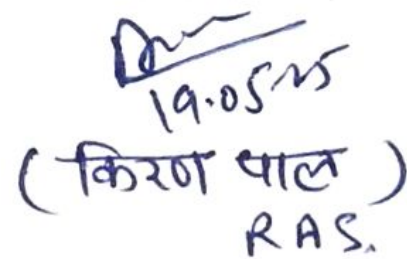 19.05.25
(किरण पाल)
RAS.